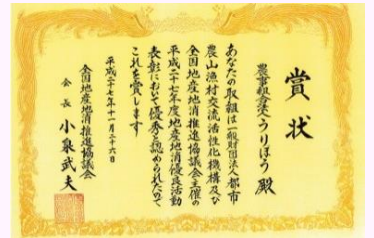 賞状
農事組合法人うりぼう殿
あなたの取組は一般財団法人都市
農山漁村交流活性化機構及び
全国地産地消推進協議会主催の
平成二十七年度地産地消優良活動
表彰において優秀と認められたので
これを賞します
平成二十七年十一月二十六日
全国地産地消推進協議会
会長 小泉武夫